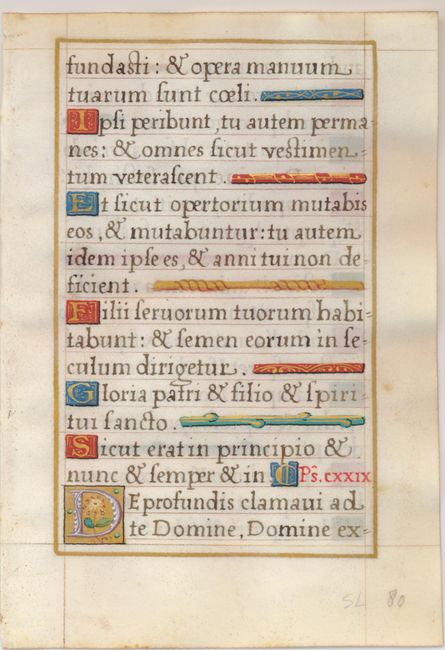 fundasti: & opera manuum
tuarum sunt cœli.
Ipsi peribunt, tu autem perma-
nes: & omnes sicut vestimen-
tum veterascent.
Et sicut opertorium mutabis
eos, & mutabuntur: tu autem
idem ipse es, & anni tui non de-
ficient.
Filii seruorum tuorum habi-
tabunt: & semen eorum in se-
culum dirigetur.
Gloria patri & filio & spiri-
tui sancto.
Sicut erat in principio &
nunc & semper & in Ps. cxxix
De profundis clamaui ad
te Domine, Domine ex-
SL 80